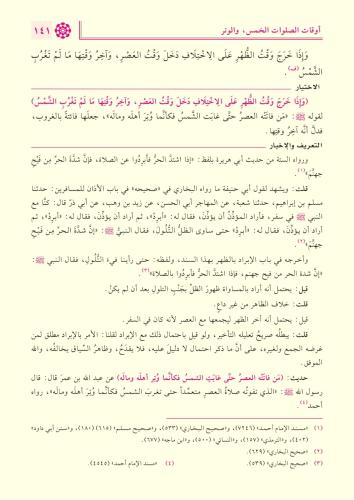 أوقات الصلوات الخمس، والوتر
١٤١
وَإِذَا خَرَجَ وَقْتُ الظُّهْرِ عَلَى الِاخْتِلَافِ دَخَلَ وَقْتُ العَصْرِ، وَآخِرُ وَقْتِهَا مَا لَمْ تَغْرُبِ
الشَّمْسُ (ف).
الاختيار
(وَإِذَا خَرَجَ وَقْتُ الظُّهْرِ عَلَى الِاخْتِلَافِ دَخَلَ وَقْتُ العَصْرِ، وَآخِرُ وَقْتِهَا مَا لَمْ تَغْرُبِ الشَّمْسُ)
لقوله ﷺ: «مَن فاتَتْه العصرُ حتَّى غابَت الشَّمسُ فكأنَّما وُتِرَ أهلَه ومالَه»، جعلَها فائتةً بالغروب،
فدلَّ أنَّه آخِرُ وقتِها.
التعريف والإخبار
ورواه الستة من حديث أبي هريرة بلفظ: «إذا اشتدَّ الحرُّ فأبرِدُوا عن الصلاة، فإنَّ شدَّةَ الحرِّ مِن فَيْحِ
جهنَّم»(١).
قلت: ويشهد لقول أبي حنيفة ما رواه البخاري في «صحيحه» في باب الأذان للمسافرين: حدثنا
مسلم بن إبراهيم، حدثنا شعبة، عن المهاجر أبي الحسن، عن زيد بن وهب، عن أبي ذرّ قال: كنَّا مع
النبي ﷺ في سفر، فأراد المؤذِّنُ أن يؤذِّنَ، فقال له: «أبرِدْ»، ثم أراد أن يؤذِّنَ، فقال له: «أبرِدْ»، ثم
أراد أن يؤذِّنَ، فقال له: «أبرِدْ» حتى ساوى الظلُّ التُّلولَ، فقال النبيُّ ﷺ: «إنَّ شدَّةَ الحرِّ مِن فَيْحِ
جهنَّم»(٢).
وأخرجه في باب الإبراد بالظهر بهذا السند، ولفظه: حتى رأينا فيءَ التُّلُولِ، فقال النبي ﷺ:
«إنَّ شدة الحر من فيح جهنم، فإذا اشتدَّ الحرُّ فأبرِدُوا بالصلاة»(٣).
قيل: يحتمل أنه أراد بالمساواة ظهورَ الظلِّ بجَنْبِ التلولِ بعد أن لم يكنْ.
قلت: خلاف الظاهر من غير داعٍ.
قيل: يحتمل أنه أخر الظهر ليجمعها مع العصر لأنه كان في السفر.
قلت: يبطله صريحُ تعليله التأخير، ولو قيل باحتمال ذلك مع الإبراد لقلنا: الأمر بالإبراد مطلق لمن
غرضه الجمع ولغيره، على أنَّ ما ذكر احتمال لا دليل عليه، فلا يقدَحُ، وظاهرُ السياق يخالفُه، والله
الموفق.
حديث: (مَن فاتَتْه العصرُ حتَّى غابَتِ الشمسُ فكأنَّما وُتِرَ أهلَه ومالَه) عن عبد الله بن عمرَ قال: قال
رسول الله ﷺ: «الذي تفوتُه صلاةُ العصرِ متعمِّداً حتى تغرب الشمسُ فكأنَّما وُتِرَ أهلَه ومالَه»، رواه
أحمد(٤).
(١) «مسند الإمام أحمد» (٧٢٤٦)، و«صحيح البخاري» (٥٣٣)، و«صحيح مسلم» (٦١٥) (١٨٠)، و«سنن أبي داود»
(٤٠٢)، و«الترمذي» (١٥٧)، و«النسائي» (٥٠٠)، و«ابن ماجه» (٦٧٧).
(٢) «صحيح البخاري» (٦٢٩).
(٣) «صحيح البخاري» (٥٣٩). (٤) «مسند الإمام أحمد» (٤٥٤٥).